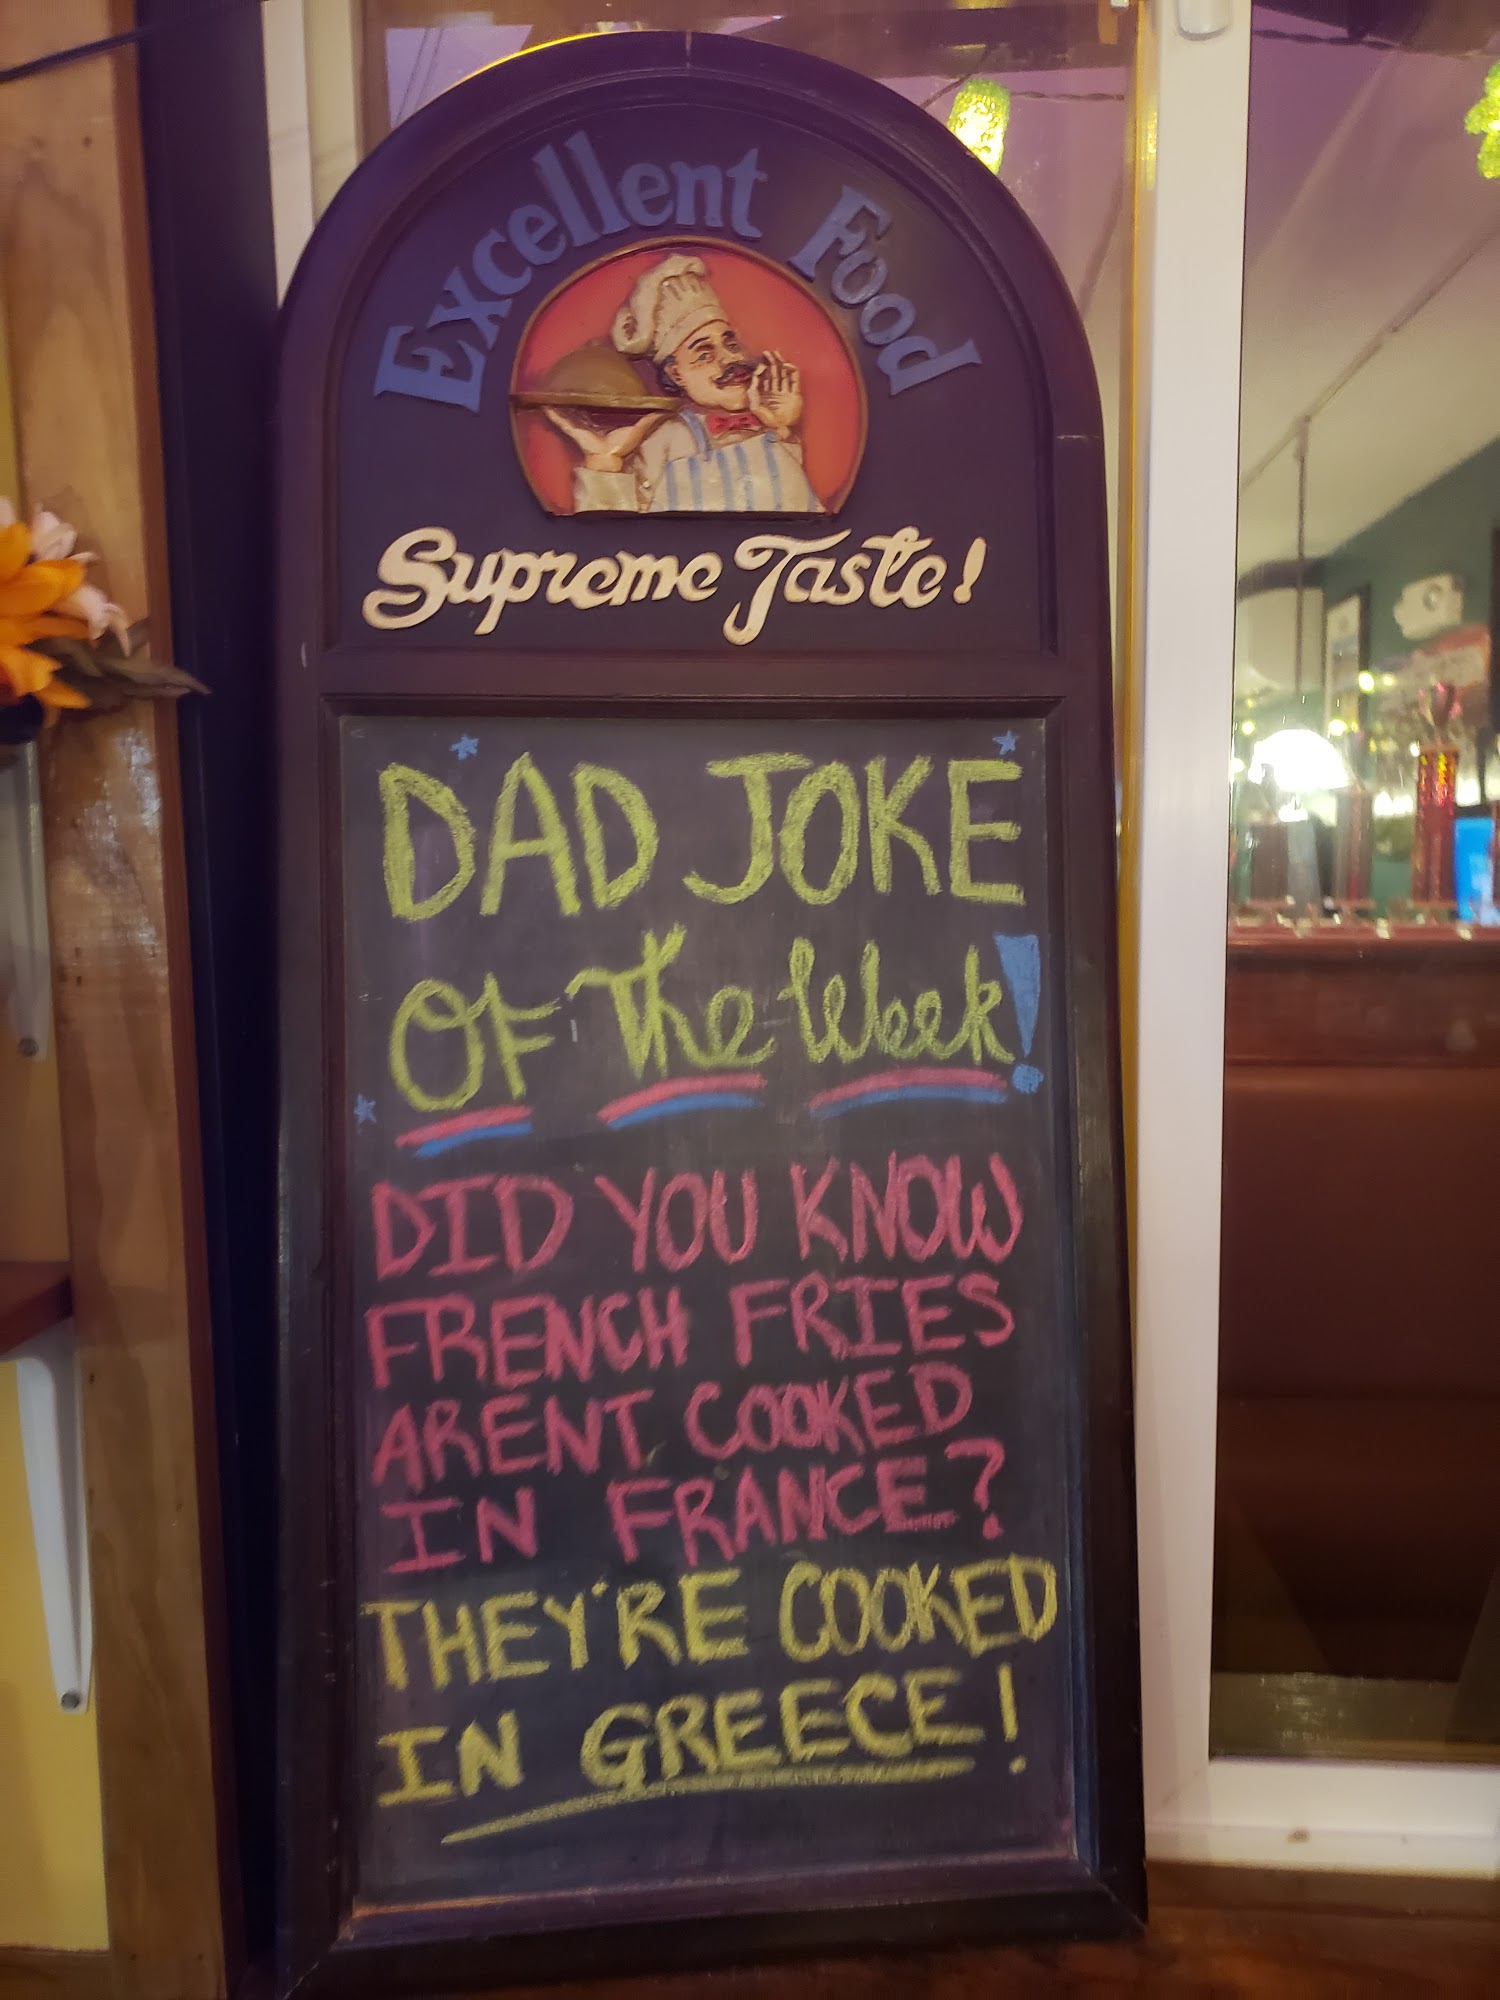 Excellent Food
Supreme Taste!
DAD JOKE
OF The Week!
DID YOU KNOW
FRENCH FRIES
ARENT COOKED
IN FRANCE?
THEY'RE COOKED
IN GREECE!